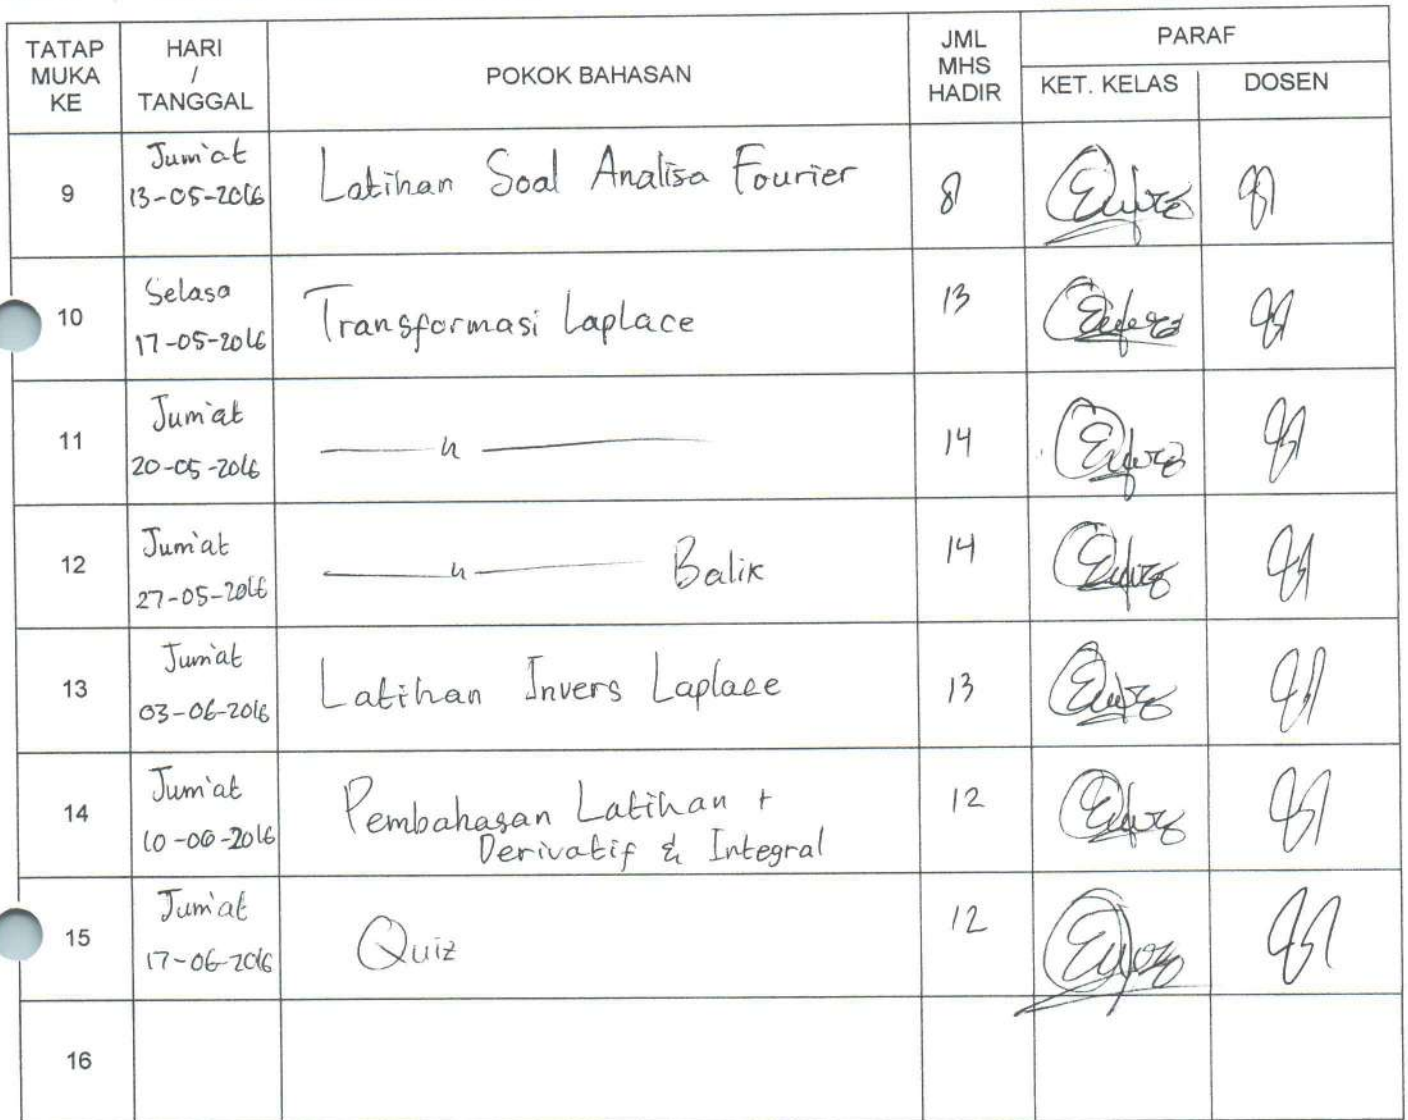 TATAP MUKA KE
HARI / TANGGAL
POKOK BAHASAN
JML MHS HADIR
PARAF
KET. KELAS
DOSEN
9
Jum'at
13-05-2016
Latihan Soal Analisa Fourier
8
10
Selasa
17-05-2016
Transformasi Laplace
13
11
Jum'at
20-05-2016
——— " ———
14
12
Jum'at
27-05-2016
——— " ——— Balik
14
13
Jum'at
03-06-2016
Latihan Invers Laplace
13
14
Jum'at
10-06-2016
Pembahasan Latihan +
Derivatif & Integral
12
15
Jum'at
17-06-2016
Quiz
12
16